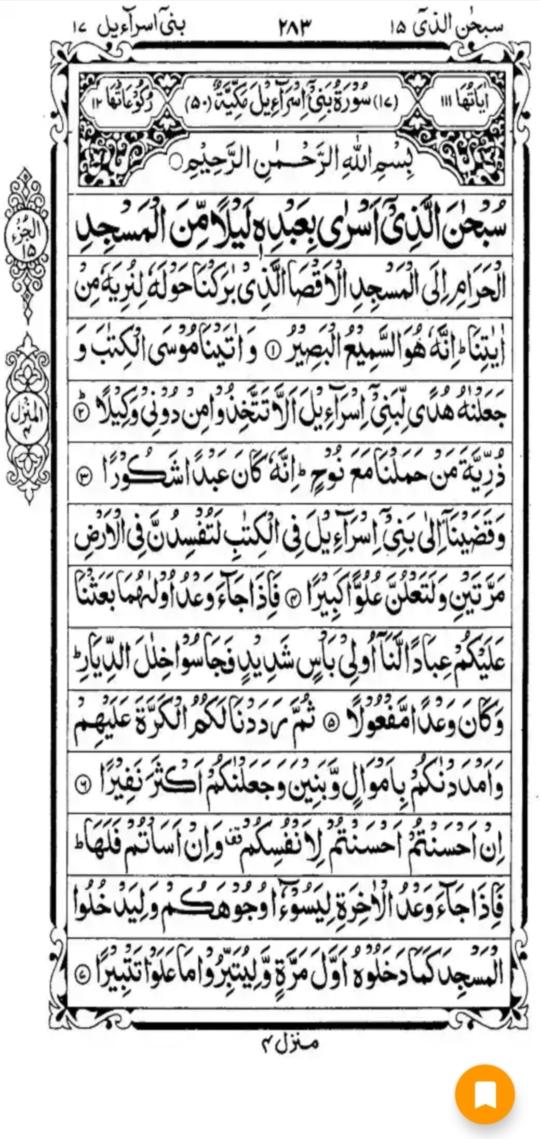 سبحٰن الذیٓ ۱۵ ۲۸۳ بنیٓ اسرآءیل ۱۷
اٰیَاتُهَا ۱۱۱ (۱۷) سُوۡرَةُ بَنِیۡۤ اِسۡرَآءِیۡلَ مَكِّیَّةٌ (۵۰) رُكُوۡعَاتُهَا ۱۲
بِسۡمِ اللّٰهِ الرَّحۡمٰنِ الرَّحِیۡمِ
سُبۡحٰنَ الَّذِیۡۤ اَسۡرٰی بِعَبۡدِهٖ لَیۡلًا مِّنَ الۡمَسۡجِدِ
الۡحَرَامِ اِلَی الۡمَسۡجِدِ الۡاَقۡصَا الَّذِیۡ بٰرَكۡنَا حَوۡلَهٗ لِنُرِیَهٗ مِنۡ
اٰیٰتِنَا ؕ اِنَّهٗ هُوَ السَّمِیۡعُ الۡبَصِیۡرُ ۝۱ وَ اٰتَیۡنَا مُوۡسَی الۡكِتٰبَ وَ
جَعَلۡنٰهُ هُدًی لِّبَنِیۡۤ اِسۡرَآءِیۡلَ اَلَّا تَتَّخِذُوۡا مِنۡ دُوۡنِیۡ وَكِیۡلًا ؕ۝۲
ذُرِّیَّةَ مَنۡ حَمَلۡنَا مَعَ نُوۡحٍ ؕ اِنَّهٗ كَانَ عَبۡدًا شَكُوۡرًا ۝۳
وَ قَضَیۡنَاۤ اِلٰی بَنِیۡۤ اِسۡرَآءِیۡلَ فِی الۡكِتٰبِ لَتُفۡسِدُنَّ فِی الۡاَرۡضِ
مَرَّتَیۡنِ وَ لَتَعۡلُنَّ عُلُوًّا كَبِیۡرًا ۝۴ فَاِذَا جَآءَ وَعۡدُ اُوۡلٰىهُمَا بَعَثۡنَا
عَلَیۡكُمۡ عِبَادًا لَّنَاۤ اُولِیۡ بَاۡسٍ شَدِیۡدٍ فَجَاسُوۡا خِلٰلَ الدِّیَارِ ؕ
وَ كَانَ وَعۡدًا مَّفۡعُوۡلًا ۝۵ ثُمَّ رَدَدۡنَا لَكُمُ الۡكَرَّةَ عَلَیۡهِمۡ
وَ اَمۡدَدۡنٰكُمۡ بِاَمۡوَالٍ وَّ بَنِیۡنَ وَ جَعَلۡنٰكُمۡ اَكۡثَرَ نَفِیۡرًا ۝۶
اِنۡ اَحۡسَنۡتُمۡ اَحۡسَنۡتُمۡ لِاَنۡفُسِكُمۡ ۟ وَ اِنۡ اَسَاۡتُمۡ فَلَهَا ؕ
فَاِذَا جَآءَ وَعۡدُ الۡاٰخِرَةِ لِیَسُوۡٓءٗا وُجُوۡهَكُمۡ وَ لِیَدۡخُلُوا
الۡمَسۡجِدَ كَمَا دَخَلُوۡهُ اَوَّلَ مَرَّةٍ وَّ لِیُتَبِّرُوۡا مَا عَلَوۡا تَتۡبِیۡرًا ۝۷
الجُزء
۱۵
المَنزل
۴
منزل ۴